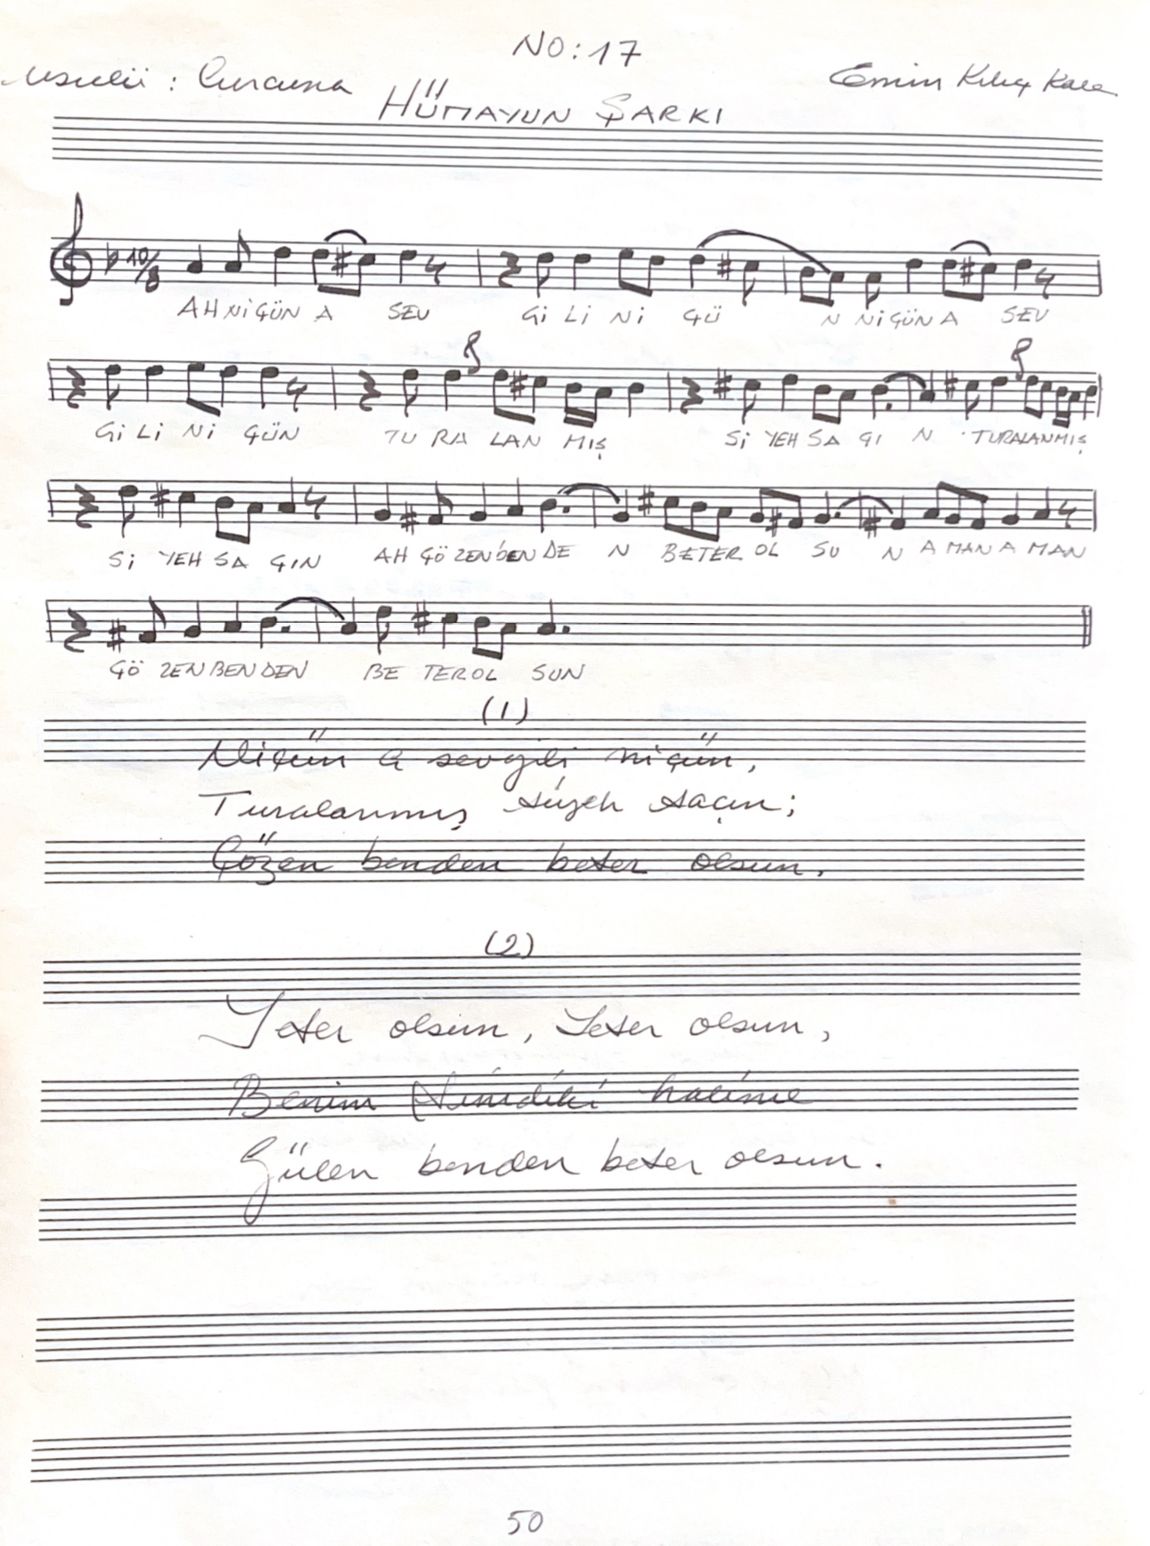 NO: 17
Usulü : Curcuna
Emin Kılıç Kale
HÜMAYUN ŞARKI
10/8
AH NİÇÜN A SEV GİLİ Nİ ÇÜ N NİÇÜN A SEV
GİLİ Nİ ÇÜN TU RA LAN MIŞ Sİ YEH SA ÇI N TURALANMIŞ
Sİ YEH SA ÇIN AH ÇÖ ZEN BEN DE N BETER OL SU N A MAN A MAN
ÇÖ ZEN BEN DEN BE TER OL SUN
(1)
Niçün a sevgili niçün,
Turalanmış siyeh saçın;
Çözen benden beter olsun.
(2)
Yeter olsun, Yeter olsun,
Benim şimdiki halime
Gülen benden beter olsun.
50